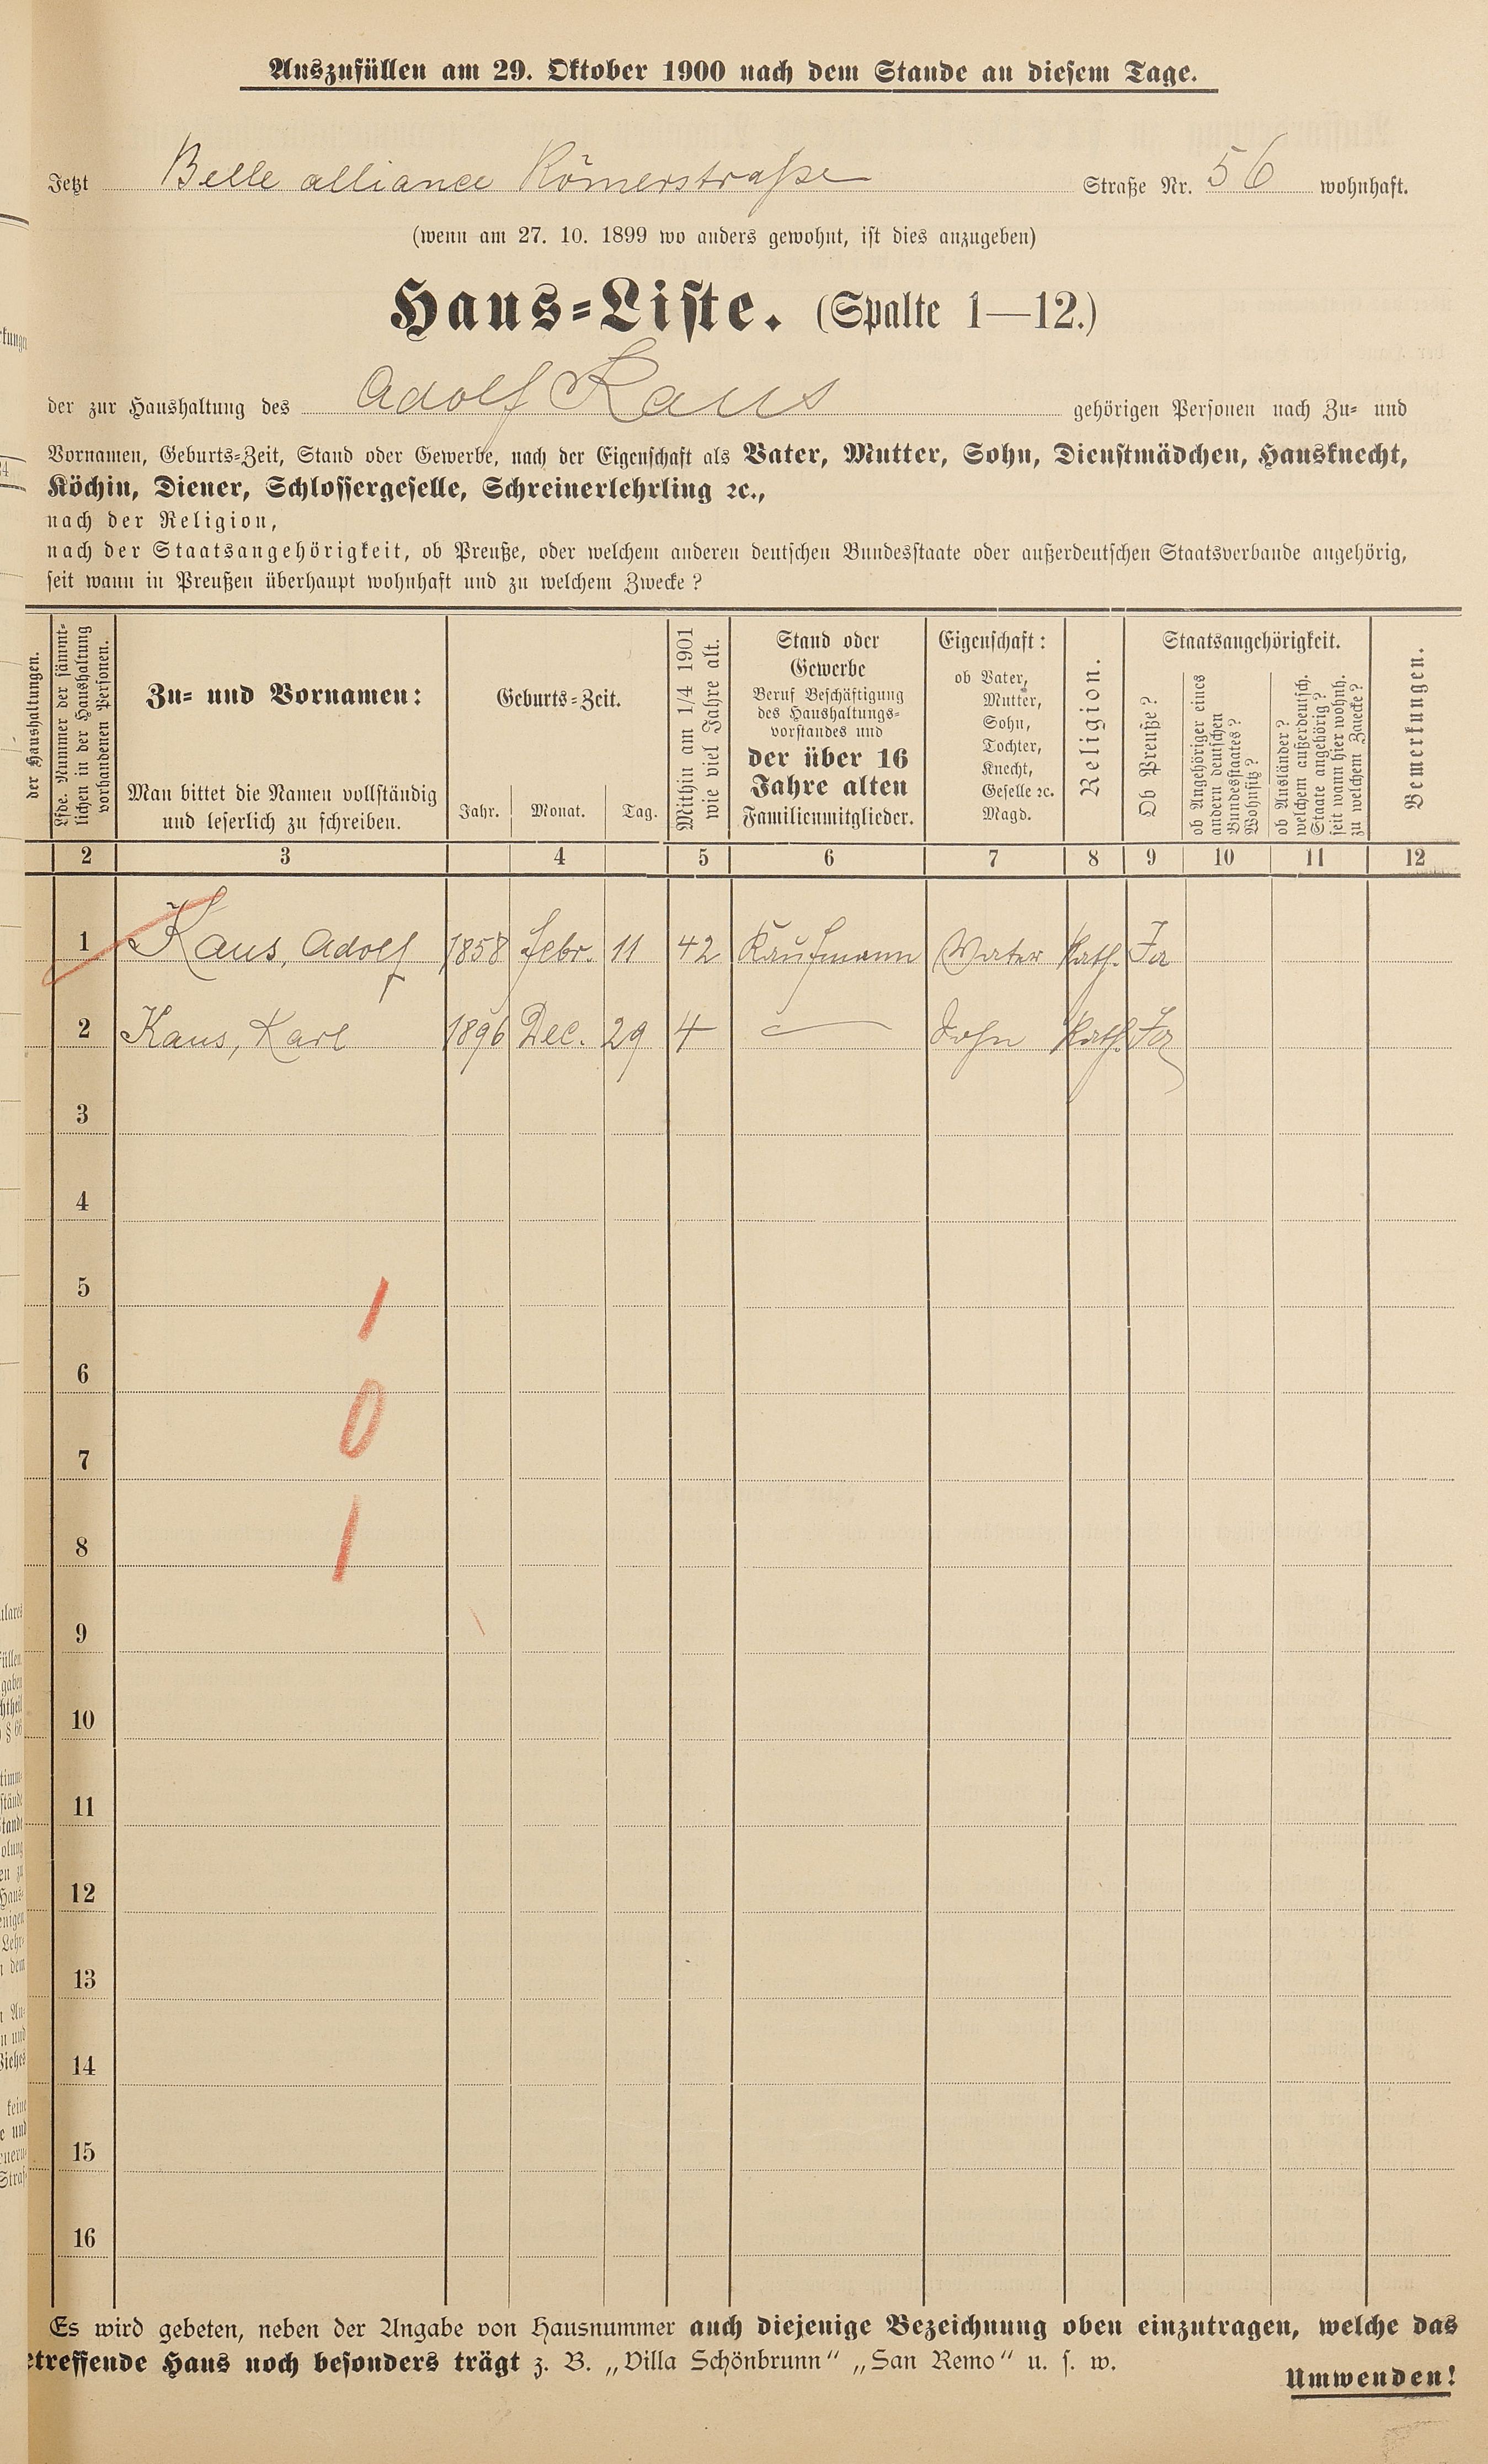 Auszufüllen am 29. Oktober 1900 nach dem Stande an diesem Tage.
Jetzt Belle alliance Römerstraße Straße Nr. 56 wohnhaft.
(wenn am 27. 10. 1899 wo anders gewohnt, ist dies anzugeben)
Haus-Liste. (Spalte 1—12.)
der zur Haushaltung des Adolf Kaus gehörigen Personen nach Zu- und
Vornamen, Geburts-Zeit, Stand oder Gewerbe, nach der Eigenschaft als Vater, Mutter, Sohn, Dienstmädchen, Hausknecht,
Köchin, Diener, Schlossergeselle, Schreinerlehrling ꝛc.,
nach der Religion,
nach der Staatsangehörigkeit, ob Preuße, oder welchem anderen deutschen Bundesstaate oder außerdeutschen Staatsverbande angehörig,
seit wann in Preußen überhaupt wohnhaft und zu welchem Zwecke?
der Haushaltungen.
Lfde. Nummer der sämmt-
lichen in der Haushaltung
vorhandenen Personen.
Zu- und Vornamen:
Man bittet die Namen vollständig
und leserlich zu schreiben.
Geburts-Zeit.
Jahr. Monat. Tag.
Mithin am 1/4 1901
wie viel Jahre alt.
Stand oder
Gewerbe
Beruf Beschäftigung
des Haushaltungs-
vorstandes und
der über 16
Jahre alten
Familienmitglieder.
Eigenschaft:
ob Vater,
Mutter,
Sohn,
Tochter,
Knecht,
Geselle ꝛc.
Magd.
Religion.
Staatsangehörigkeit.
Ob Preuße?
ob Angehöriger eines
andern deutschen
Bundesstaates?
Wohnsitz?
ob Ausländer?
welchem außerdeutsch.
Staate angehörig?
seit wann hier wohnh.
zu welchem Zwecke?
Bemerkungen.
2 3 4 5 6 7 8 9 10 11 12
1 Kaus, Adolf 1858 Febr. 11 42 Kaufmann Vater kath. Ja
2 Kaus, Karl 1896 Dec. 29 4 — Sohn kath. Ja
3
4
5
1
6
0
7
1
8
9
10
11
12
13
14
15
16
Es wird gebeten, neben der Angabe von Hausnummer auch diejenige Bezeichnung oben einzutragen, welche das
etreffende Haus noch besonders trägt z. B. „Villa Schönbrunn“ „San Remo“ u. s. w.
Umwenden!